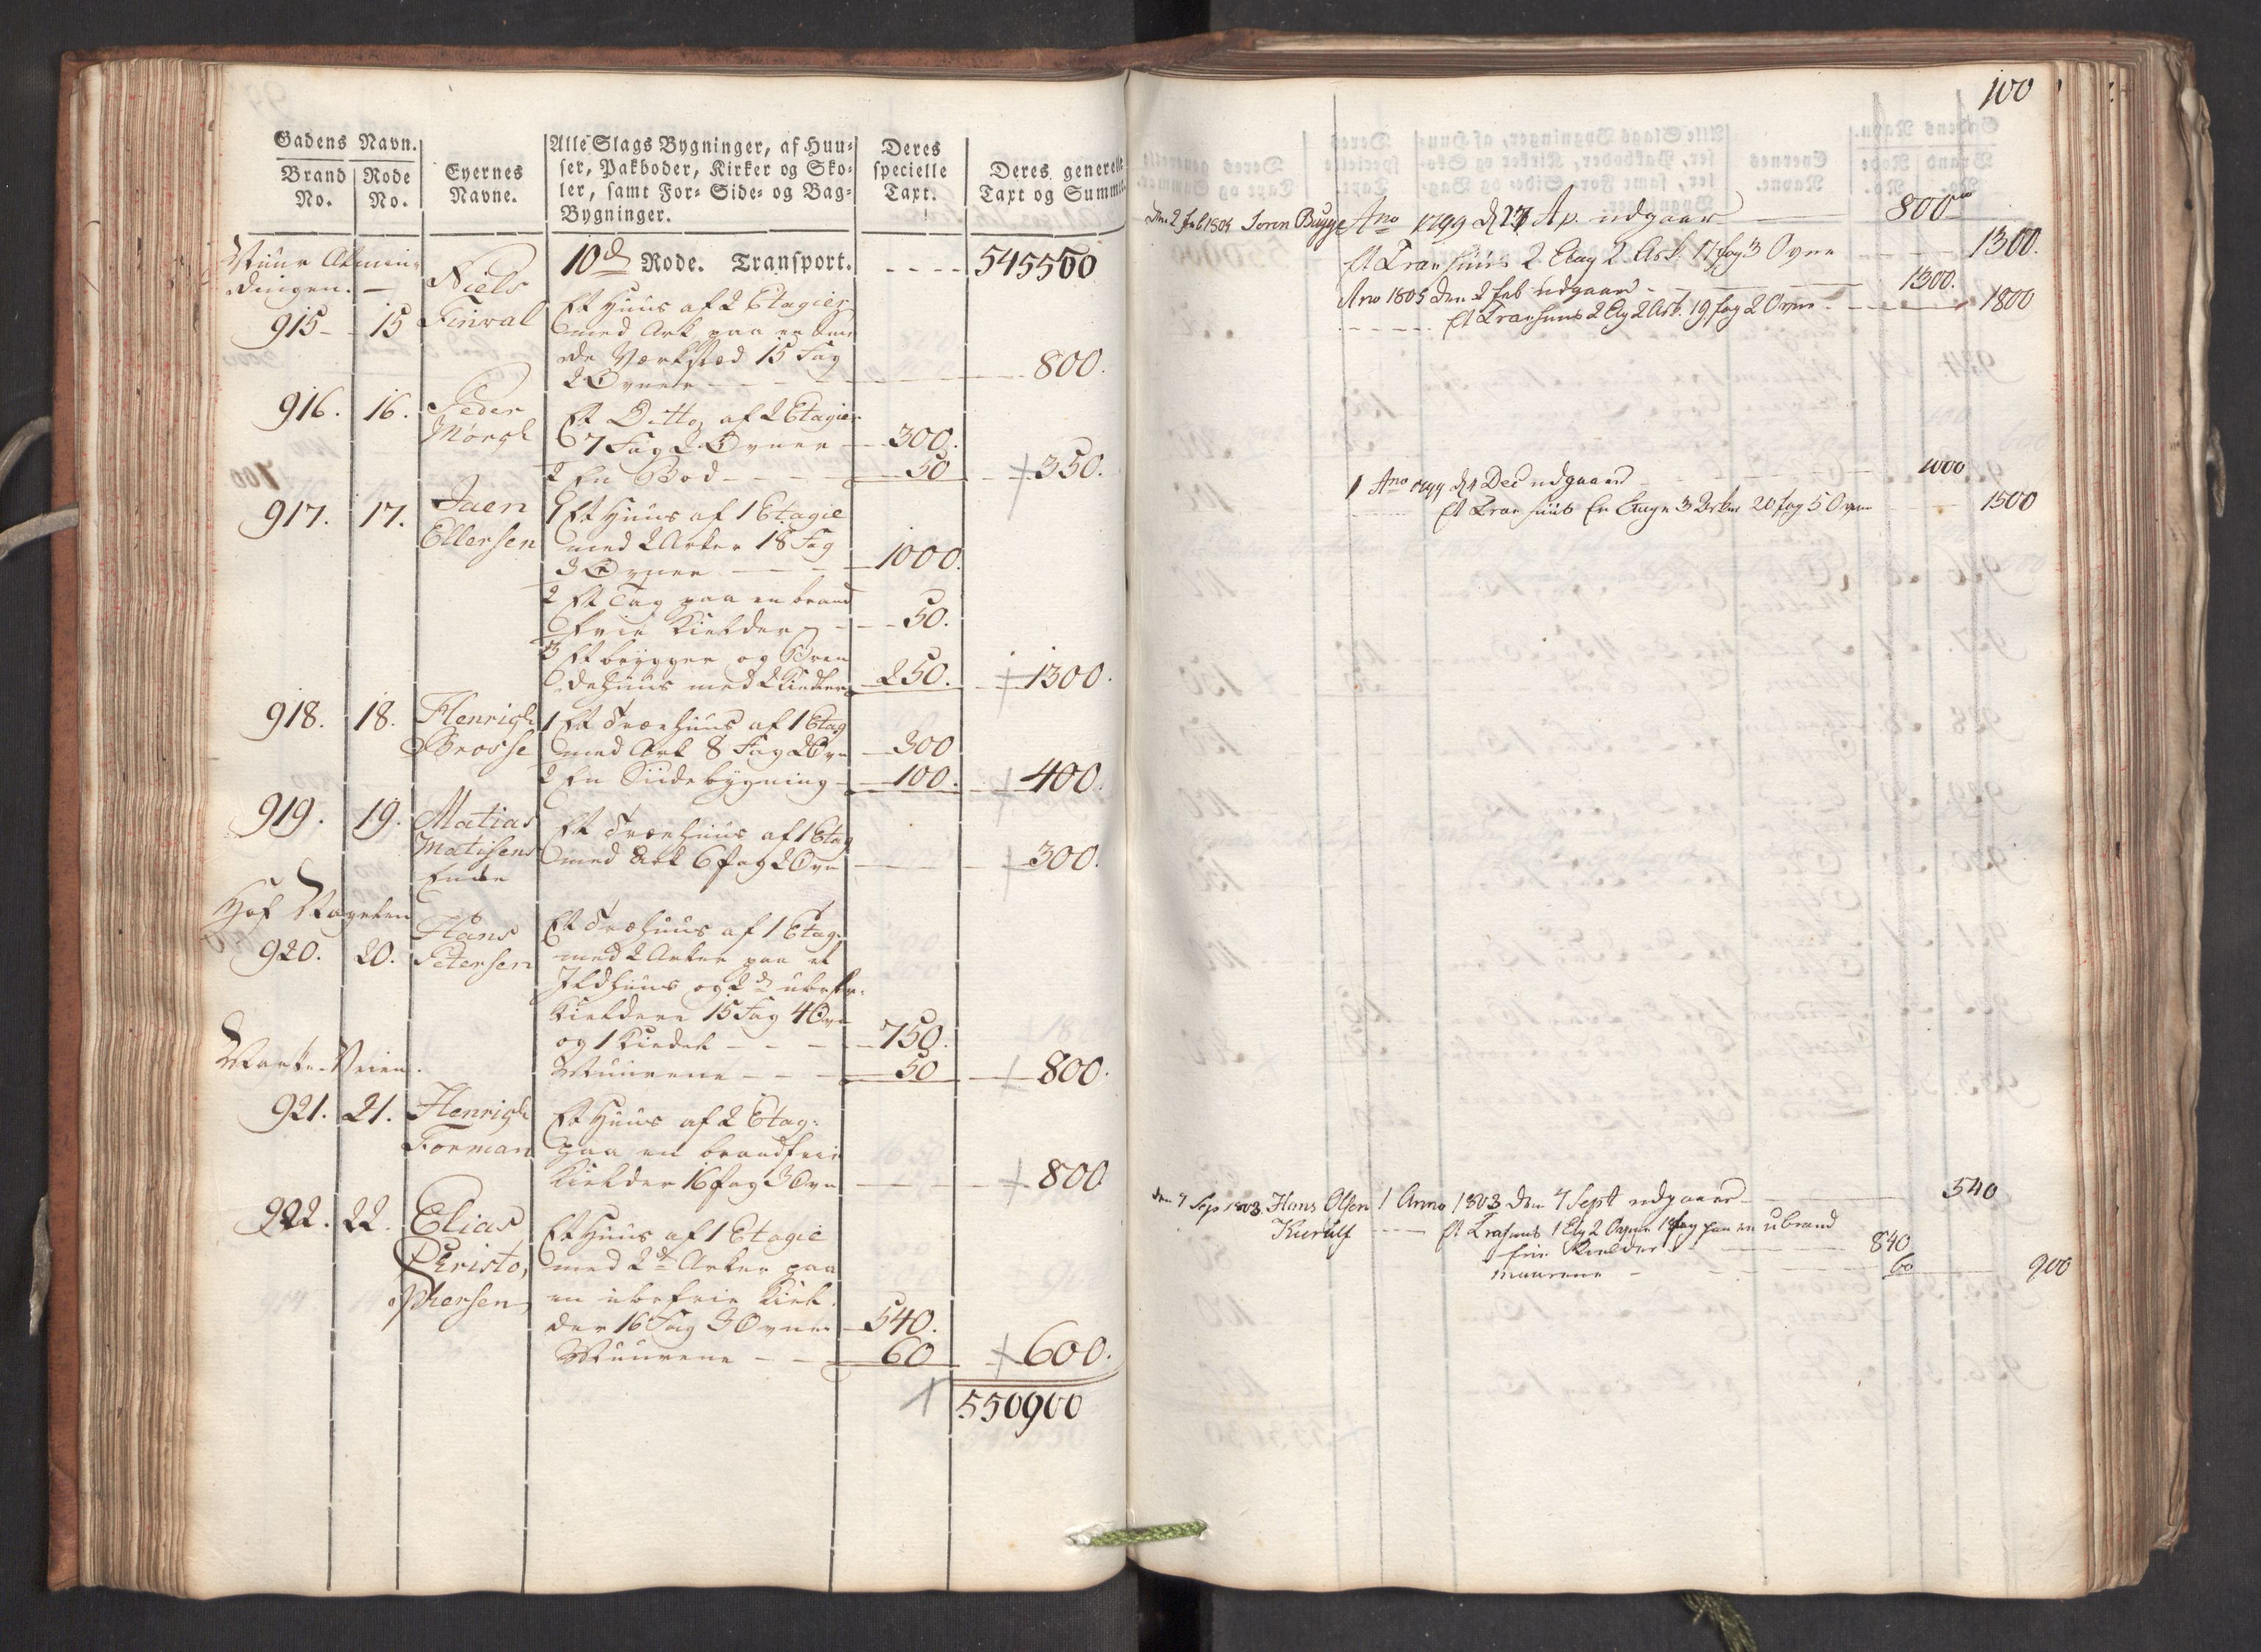 Gadens Navn.
Brand No.
Rode No.
Eyernes Navne.
Alle Slags Bygninger, af Huu-
ser, Pakboder, Kirker og Sko-
ler, samt For- Side- og Bag-
Bygninger.
Deres specielle Taxt.
Deres generelle Taxt og Summa.
Muur Almin-
dingen. —
10de Rode. Transport. - - - - 545550
915 - 15 Niels
Finval
Et Huus af 2 Etagier
med Ark paa en
de Værksted 15 Fag
2 Ovner - - - - 800.
916. 16. Peder
Mørch
Et Ditto af 2 Etagier
7 Fag 2 Ovner — 300.
2 En Bod - - - 50 - 350.
917. 17. Jaen
Ellersen
1 Et Huus af 1 Etagie
med 2 Arker 18 Fag
3 Ovner — - — 1000.
2 Et Tag paa en brand
frie Kielder - - 50.
3 Et brygger og Bren
dehuus med 2 Kiedler 250. - 1300.
918. 18. Henrich
Brosse
1 Et Træehuus af 1 Etag
med Ark 8 Fag 2 Ovn — 300
2 En Siidebygning — 100. 400.
919. 19. Matias
Matisens
Enke
Et Træehuus af 1 Etag
med Ark 6 fag 2 Ovn — 300.
920. 20. Hans
Petersen
Et Træhuus af 1 Etag.
med 2 Arker paa et
Ildhuus og 2de ubrfr.
Kieldere 15 Fag 4 Ovn
og 1 Kiedel - - - 750.
Muurene - - - 50 — 800.
Mark-Veien.
921. 21. Henrich
Forman
Et Huus af 2 Etag:
paa en brandfrie
Kielder 16 fag 3 Ovn — 800
922. 22. Elias
Christo,
phersen
Et Huus af 1 Etagie
med 2de Arker paa
en ubrfrie Kiel-
der 16 Fag 3 Ovner — 540.
Muurene - - 60 600.
550900
100
Den 2 feb 1805 Soren Bugge Ano 1799 d 27 Ap. udgaar — 800
Et Træ huus 2 Etag 2 Ark. 17 fag 3 Ovne - - 1300.
Ano 1805 den 2 feb udgaar - 1300.
Et Træhuus 2 Etg 2 Ark. 19 fag 2 Ovne - - 1800
1 Ano 1799 d 4 Dec udgaaer 1000
Et Træ huus En Etage 3 Arker 20 fag 5 Ovne 1500
den 7 Sep 1803 Hans Olsen
Kurulf
1 Anno 1803 den 7 Sept udgaaer — 540
Et Træhuus 1 Etg 2 Ovne 18 fag paa en ubrand
frie Kielder - - 840
muurene - 60 — 900